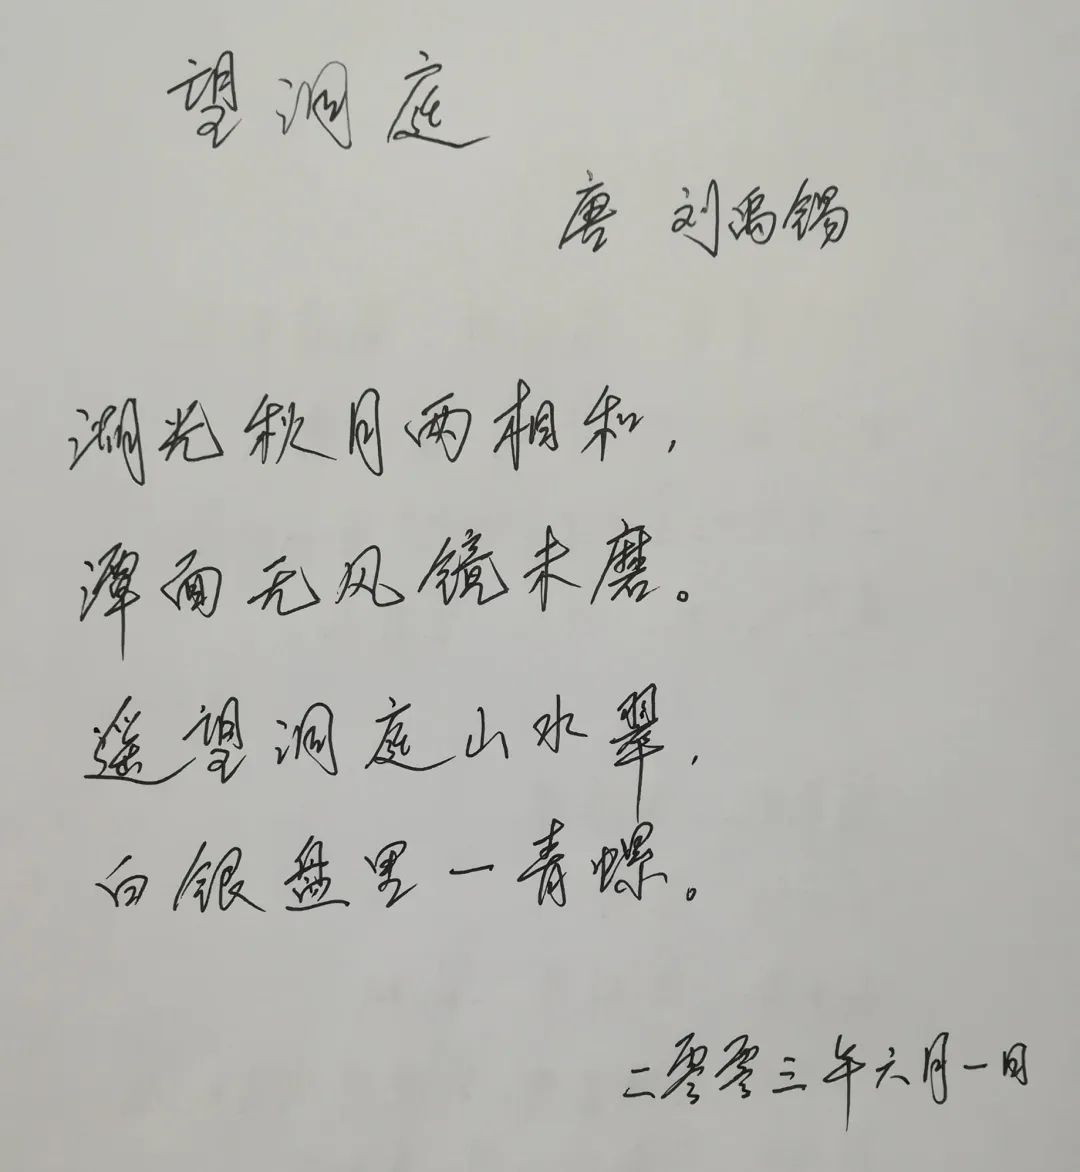 望洞庭
唐 刘禹锡
湖光秋月两相和，
潭面无风镜未磨。
遥望洞庭山水翠，
白银盘里一青螺。
二零零三年六月一日